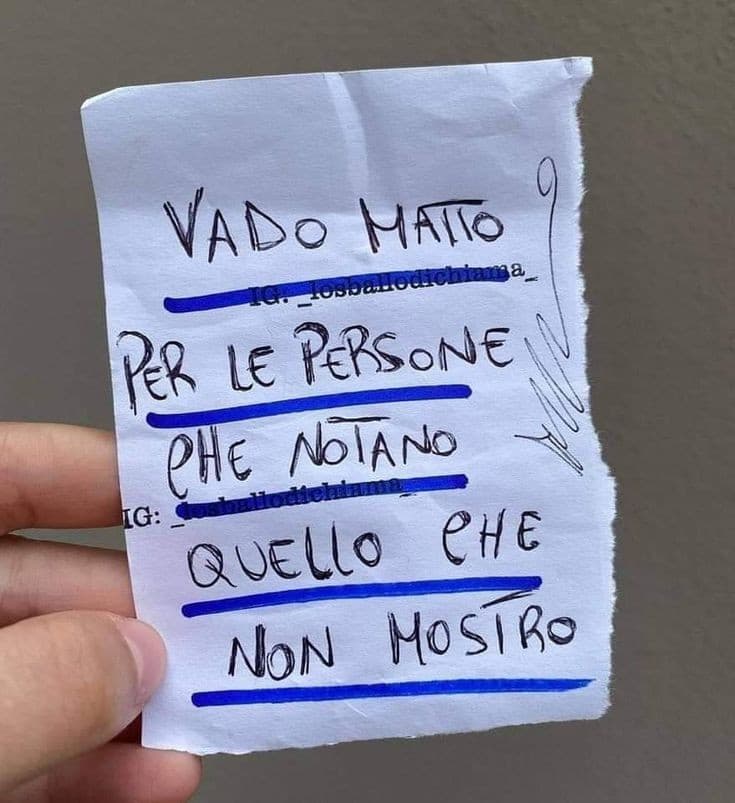 VADO MATTO
IG: _losballodichiama_
PER LE PERSONE
CHE NOTANO
IG: _losballodichiama_
QUELLO CHE
NON MOSTRO